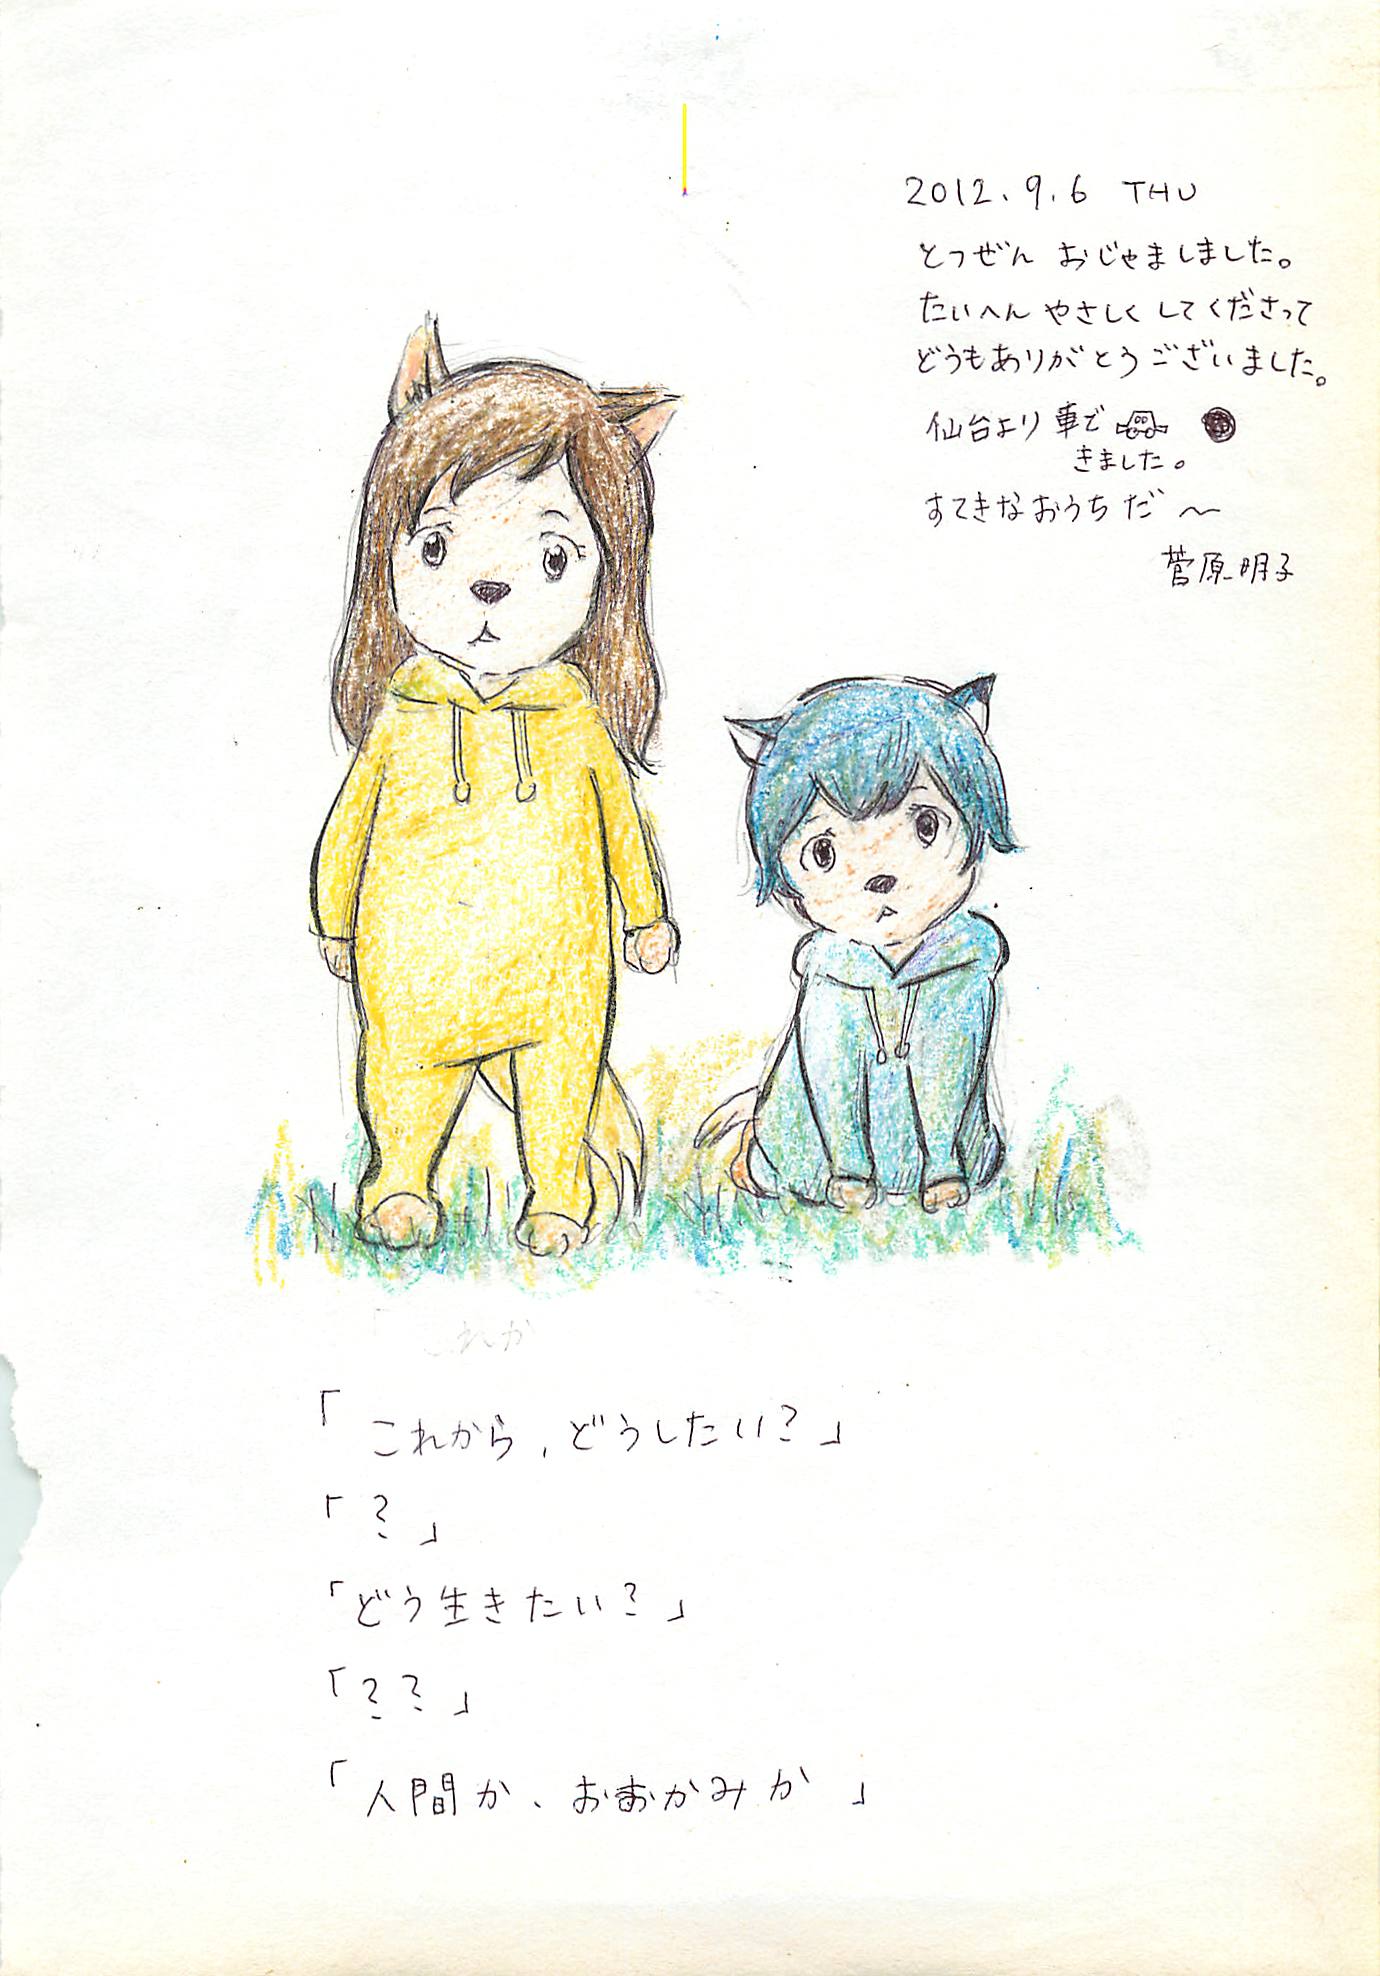 2012.9.6 THU
とつぜん おじゃましました。
たいへん やさしく してくださって
どうもありがとうございました。
仙台より車で
きました。
すてきなおうちだ〜
菅原明子
これか
「これから、どうしたい？」
「？」
「どう生きたい？」
「？？」
「人間か、おおかみか」